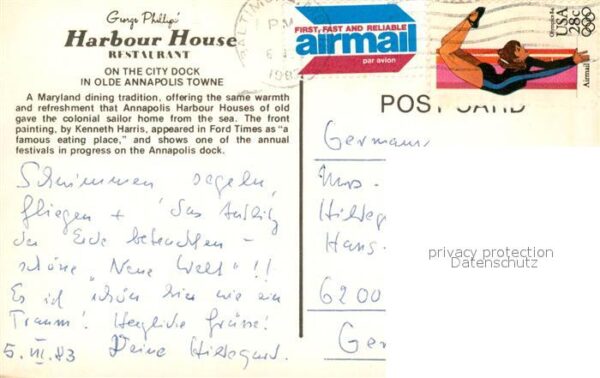 George Phillips'
Harbour House
RESTAURANT
ON THE CITY DOCK
IN OLDE ANNAPOLIS TOWNE
A Maryland dining tradition, offering the same warmth
and refreshment that Annapolis Harbour Houses of old
gave the colonial sailor home from the sea. The front
painting, by Kenneth Harris, appeared in Ford Times as "a
famous eating place," and shows one of the annual
festivals in progress on the Annapolis dock.
Schwimmen segeln,
fliegen + das Antlitz
der Erde betrachten -
schöne "Neue Welt"!!
Es ist schön hier wie ein
Traum! Herzliche Grüsse!
5. VI. 83 Deine Hildegard.
BALTIMORE
PM
6
198
FIRST, FAST AND RELIABLE
airmail
par avion
Olympics 84
USA
28c
Airmail
POST CARD
Germany
Mrs.
Hildeg
Hans.
6200
Ger
privacy protection
Datenschutz